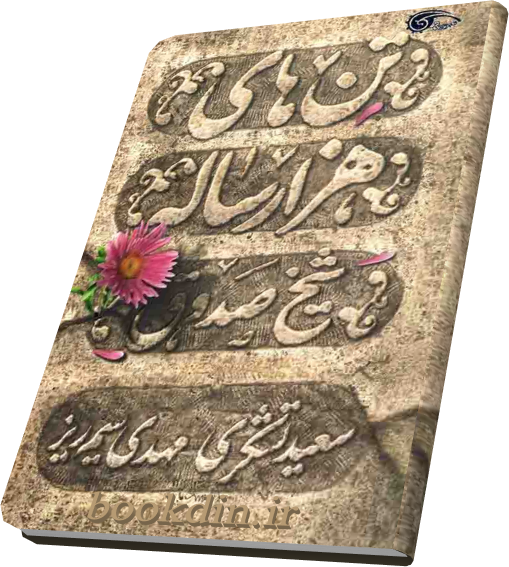 تن های
هزار ساله
شیخ صدوق
سعید تشکری مهدی سیم ریز
bookdin.ir